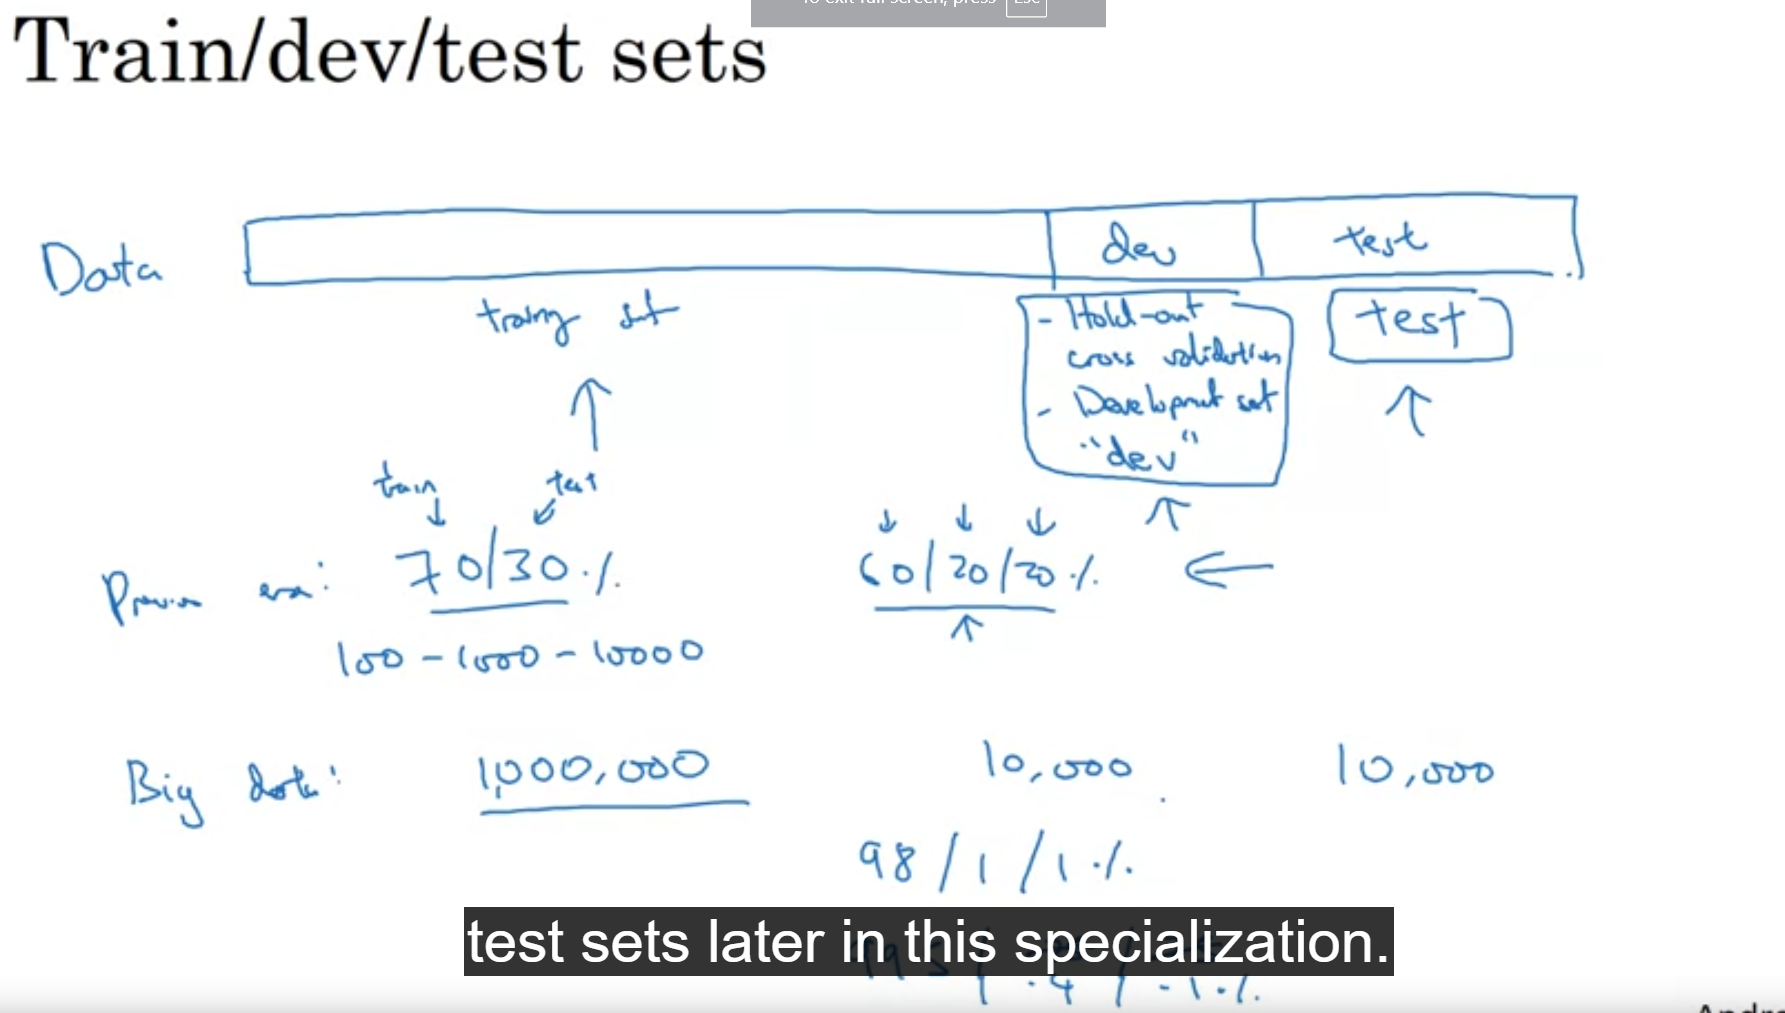 Train/dev/test sets
Data
dev
test
training set
- Hold-out
cross validation
- Development set
"dev"
test
train
test
Previous era:
70/30 %
60/20/20 %
100 - 1000 - 10000
Big data:
1,000,000
10,000
10,000
98/1/1 %
test sets later in this specialization.
.4 / .1 %